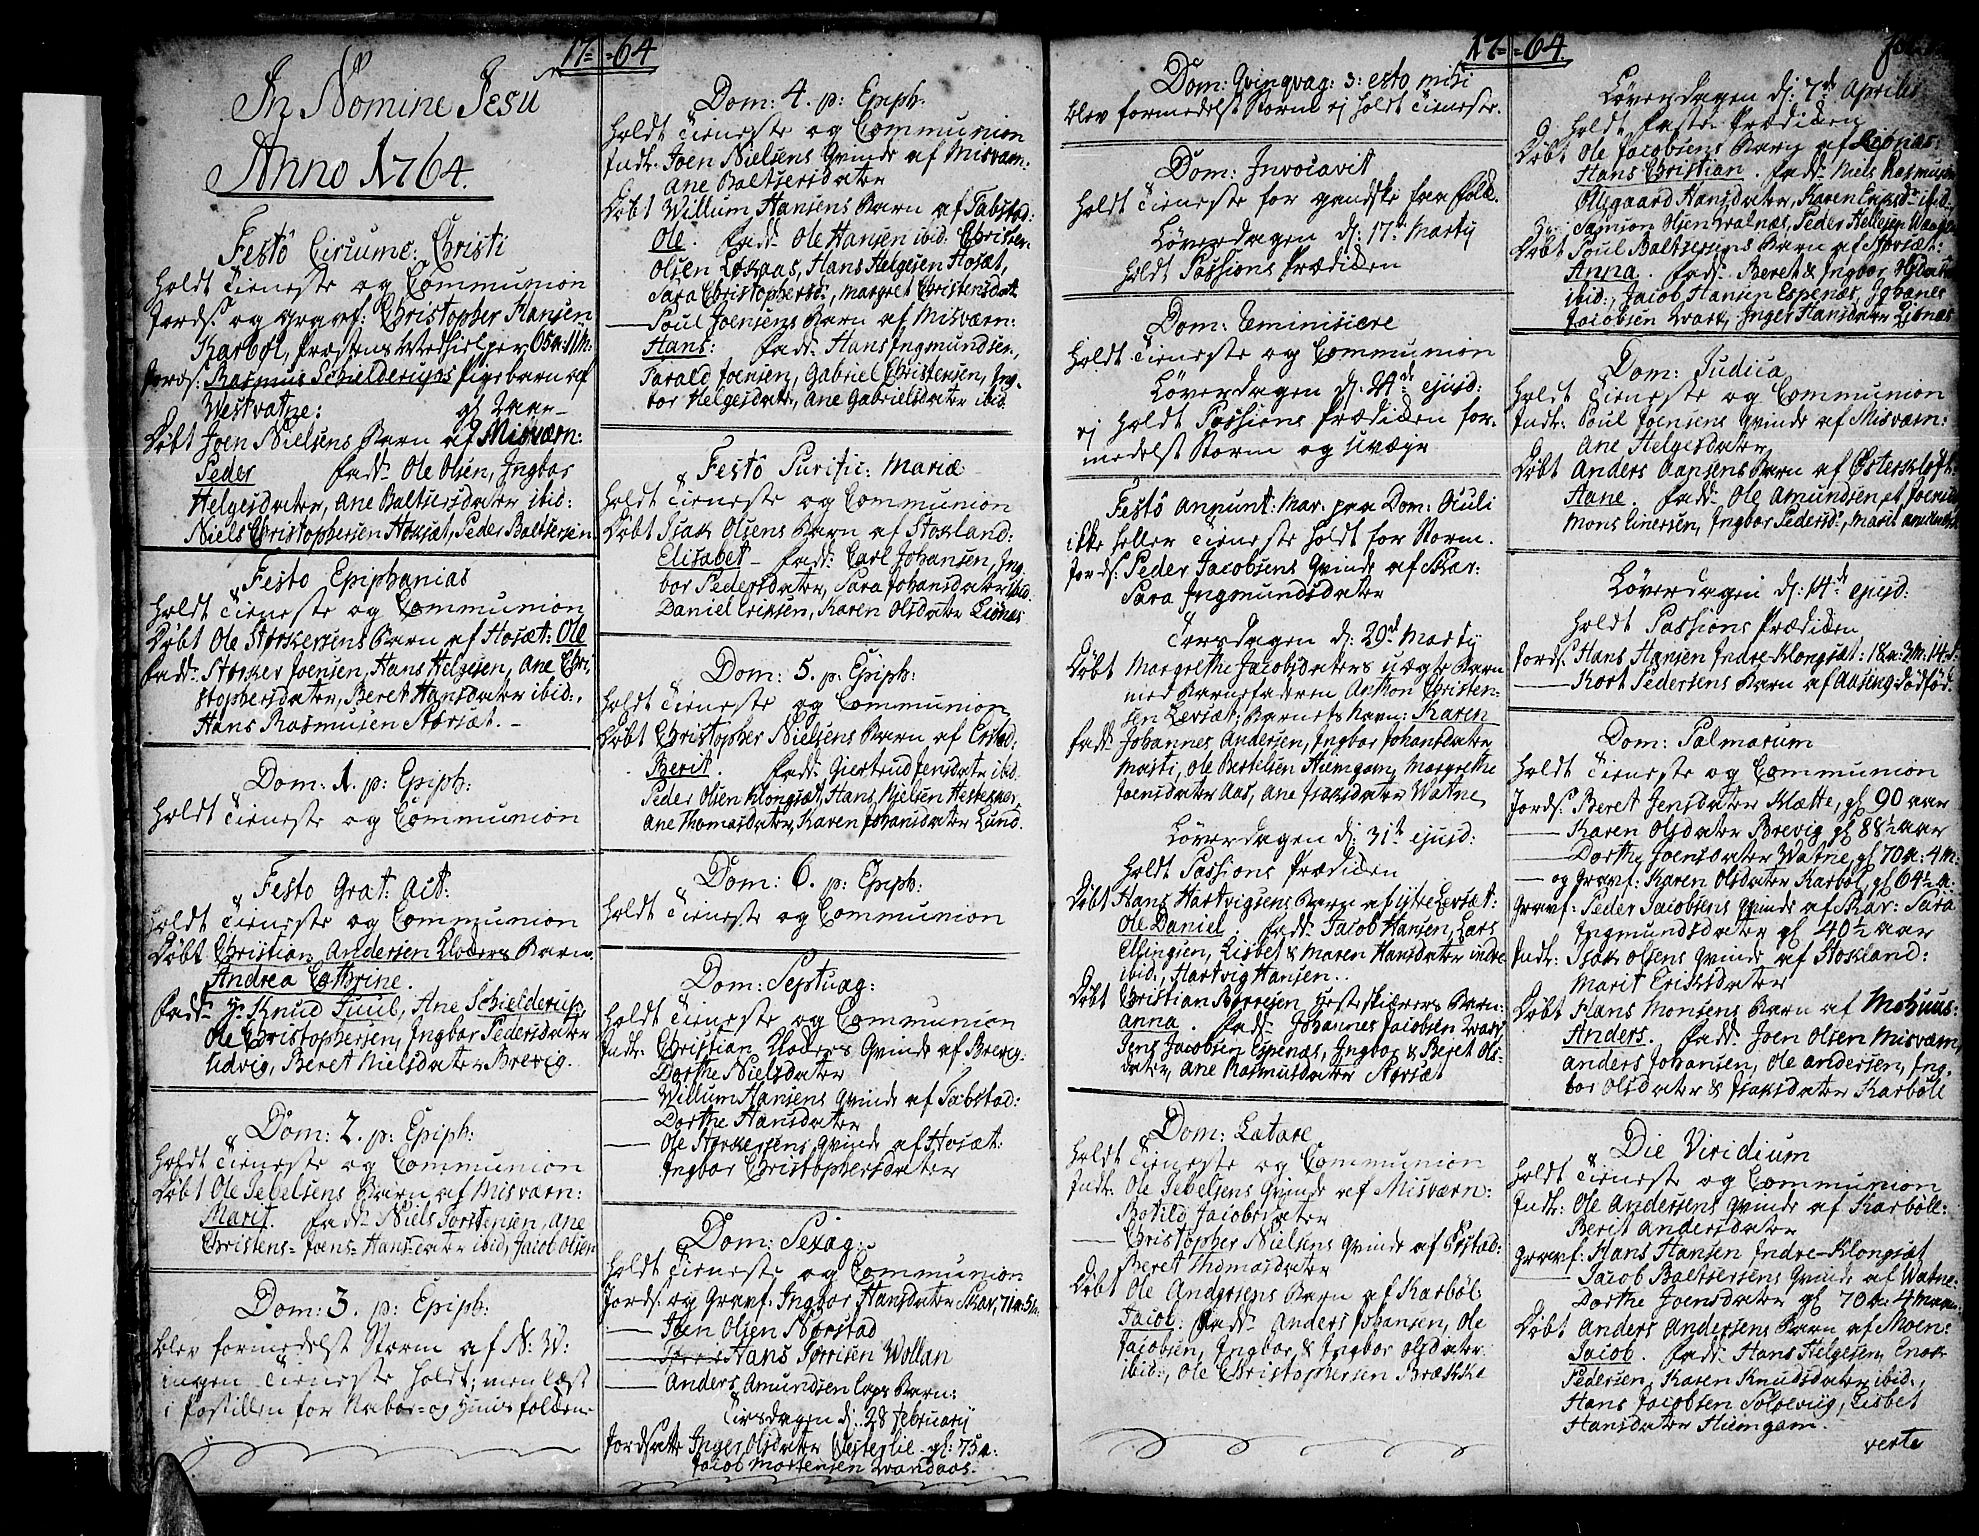 17=
In Nomine Jesu
Anno 1764.
Festo Circumc: Christi
Holdt Tieneste og Communion
Jords. og graf: Christopher Hansen
Karbøl, Præstens Medhielper 65 a: 11 M:
Jords: Rasmus Schielderups Pigebarn af
Westvatne: gl
Døbt Joen Nielsens Barn af Misværn:
Peder Fadd. Ole Olsen, Ingbor
Helgesdater, Ane Baltsersdater ibid:
Niels Christophersen Hoksæt, Peder Baltsersen
Festo Epiphanias
Holdt Tieneste og Communion
Døbt Ole Storkersens Barn af Hosæt: Ole
Fadd. Storker Joensen, Hans Helgesen, Ane Chri-
stophersdater, Beret Hansdater ibid:,
Hans Rasmusen Storsæt. -
Dom: 1. p: Epiph:
Holdt Tieneste og Communion
Festo Grat: Act:
Holdt Tieneste og Communion
Døbt Christian Andersen Kloders Barn
Andrea Cathrine.
Fadd. Hr Knud Juul, Ane Schielderup,
Ole Christophersen, Ingbor Pedersdater
Udvig, Beret Nielsdater Brevig.
Dom: 2. p: Epiph:
Holdt Tieneste og Communion
Døbt Ole Jebelsens Barn af Misværn:
Marit. Fadd. Niels Torstensen, Ane
Christens= Joens= Hansdater ibid, Jacob Olsen
Dom: 3. p: Epiph:
blev formedelst Storm af N: W:
ingen Tieneste holdt; men læst
i Postillen for Naboe= og Huus folkene
=64
Dom: 4. p: Epiph:
Holdt Tieneste og Communion
Indl: Joen Nielsens Qvinde af Misværn:
Ane Baltsersdater
Døbt Willum Hansens Barn af Tabstad:
Ole. Fadd. Ole Hansen ibid. Christen
Olsen Løkaas, Hans Helgesen Hosæt,
Sara Christophersd., Margret Christensdat
— Poul Joensens Barn af Misværn:
Hans: Fadd. Hans Ingmundsen,
Tarald Joensen, Gabriel Christensen, Ing-
bor Helgesdater, Ane Gabrielsdater ibid
Festo Purific: Mariæ
Holdt Tieneste og Communion
Døbt Isak Olsens Barn af Stokland:
Elisabet - Fadd: Carl Johansen, Ing
bor Pedersdater, Sara Johansdater ibid.
Daniel Eriksen, Karen Olsdater Lionæs
Dom: 5. p: Epiph:
Holdt Tieneste og Communion
Døbt Christopher Nielsens Barn af Erstad:
Berit. Fadd. Giertrud Jensdater ibid.
Peder Olsen Klongsæt, Hans Nielsen Hestekiær,
Ane Thomasdater, Karen Johansdater Lund.
Dom: 6. p: Epiph:
Holdt Tieneste og Communion
Dom: Septuag:
Holdt Tieneste og Communion
Indl. Christian Kloders Qvinde af Brevig:
Dorthe Nielsdater
— Willum Hansens Qvinde af Tabstad:
Dorthe Hansdater
— Ole Storkersens Qvinde af Hosæt:
Ingbor Christophersdater
Dom: Sexag:
Holdt Tieneste og Communion
Jords. og Graf: Ingbor Hansdater Skar, 71 a: 5 M.
— Iben Olsen Nørstad
— Hans Torrisen Wollan
— Anders Amundsen Laps Barn:
Tirsdagen d. 28 February
Jordsatte Inger Olsdater Westerlie gl: 75 a:
Jacob Mortensen Wandaas.
17=
Dom: Qvinqvag: s: esto mihi
blev formedelst Storm ej holdt Tieneste.
Dom: Invocavit
Holdt Tieneste for gandske faa Folk.
Løverdagen d: 17de Martij
Holdt Passions Prædiken
Dom: Reminiscere
Holdt Tieneste og Communion
Løverdagen d: 24de ejusd:
ej holdt Passions Prædiken for-
medelst Storm og Uveyr
Festo Annunt: Mar. paa Dom: Oculi
ikke heller Tieneste holdt for Storm.
Jords: Peder Jacobsens Qvinde af Skar:
Sara Ingmundsdater
Torsdagen d: 29de Martij
Døbt Margrethe Jacobsdaters uægte Barn
med Barnefaderen Anthon Christen-
sen Løvsæt; Barnets Navn: Karen
Fadd. Johannes Andersen, Ingbor Johansdater
Marti, Ole Bertelsen Hiemgam, Margrethe
Joensdater Aas, Ane Isaksdater Watne
Løverdagen d: 31te ejusd:
Holdt Passions Prædiken
Døbt Hans Hartvigsens Barn af ytre Løvsæt:
Ole Daniel. Fadd: Jacob Hansen, Lars
Ellingsen, Lisbet & Maren Hansdater indre
ibid:, Hartvig Hansen.
Døbt Christian Børresen Hestekiærers Barn:
Anna. Fadd. Johannes Jacobsen
Jens Jacobsen Espenæs, Ingbor & Beret Ols-
dater, Ane Rasmusdater Storsæt
Dom: Lætare
Holdt Tieneste og Communion
Indl: Ole Jebelsens Qvinde af Misværn:
Botild Jacobsdater
— Christopher Nielsens Qvinde af Erstad:
Beret Thomasdater
Døbt Ole Andersens Barn af Karbøl
Jacob: Fadd. Anders Johansen, Ole
Jacobsen, Ingbor & Ingbor Olsdater
ibid:, Ole Christophersen Brække
=64.
Løverdagen d: 7de Aprilis
Holdt Faste Prædiken
Døbt Ole Jacobsens Barn af Lionæs:
Hans Christian. Fadd. Niels Rasmusen
Ollegaard Hansdater, Karen Larsd. ibid.
Samson Olsen Walnæs, Peder Hellesen
Døbt Poul Baltsersens Barn af Storsæt:
Anna. Fadd. Beret & Ingbor
ibid:, Jacob Hansen Espenæs, Johanes
Jacobsen, Inger Hansdater Lionæs
Dom: Judica
Holdt Tieneste og Communion
Indl: Poul Joensens Qvinde af Misværn:
Ane Helgesdater
Døbt Anders Aansens Barn af Østerkløft:
Aane. Fadd. Ole Amundsen
Mons Einersen, Ingbor Pedersd., Marit
Løverdagen d: 14de ejusd:
Holdt Passions Prædiken
Jords: Hans Hansen Indre-Klongsæt: 18 a: 3 M: 14 d:
— Kort Pedersens Barn af Aaseng dødfød
Dom: Palmarum
Holdt Tieneste og Communion
Jords. Beret Jensdater Klætte, gl 90 aar
— Karen Olsdater Brevig gl 88½ aar
— Dorthe Joensdater Watne, gl 70 a: 4 M:
— og Graf: Karen Olsdater Karbøl, gl 64½ a:
Graf: Peder Jacobsens Qvinde af Skar: Sara
Ingmundsdater gl 40½ aar
Indl: Isak Olsens Qvinde af Stokland:
Marit Eriksdater
Døbt Hans Monsens Barn af Mohuus:
Anders. Fadd. Joen Olsen Misværn,
Anders Johansen, Ole Andersen, Ing-
bor Olsdater & Isaksdater Karbøll
Die Viridium
Holdt Tieneste og Communion
Indl: Ole Andersens Qvinde af Karbøll:
Berit Andersdater
Graf: Hans Hansen Indre-Klongsæt
— Jacob Baltsersens Qvinde af Watne:
Dorthe Joensdater gl 70 a: 4 Maan:
Døbt Anders Andersens Barn af Moen:
Jacob. Fadd. Hans Helgesen, Enok
Pedersen, Karen Knudsdater ibid:,
Hans Jacobsen Soløevig, Lisbet
Hansdater Hiemgam.
verte